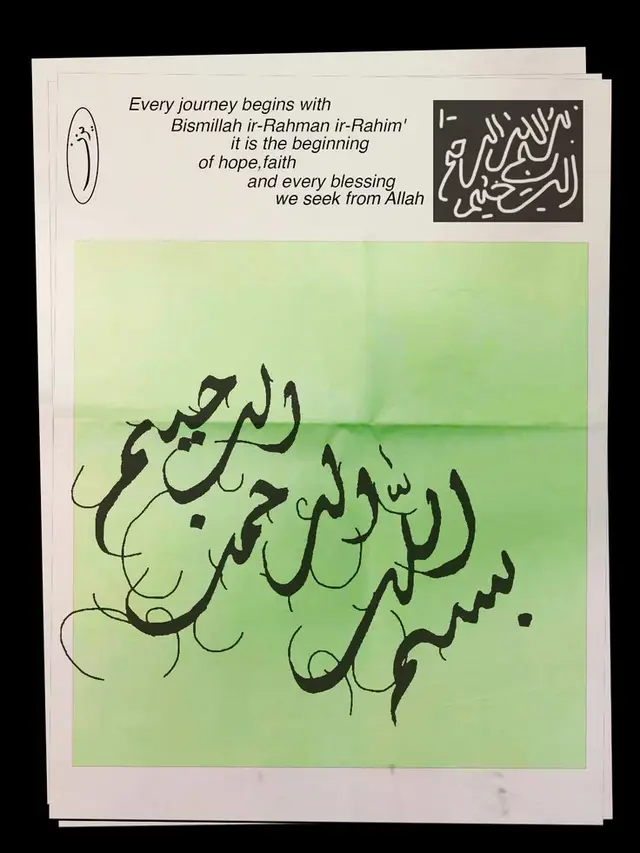 Every journey begins with
Bismillah ir-Rahman ir-Rahim'
it is the beginning
of hope,faith
and every blessing
we seek from Allah
بسم
الله
الرحمن
الرحيم